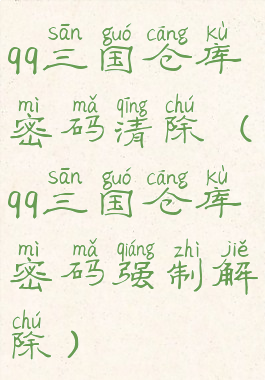 sān guó cāng kù
99三国仓库
mì mǎ qīng chú
密码清除（
sān guó cāng kù
99三国仓库
mì mǎ qiáng zhì jiě
密码强制解
chú
除）